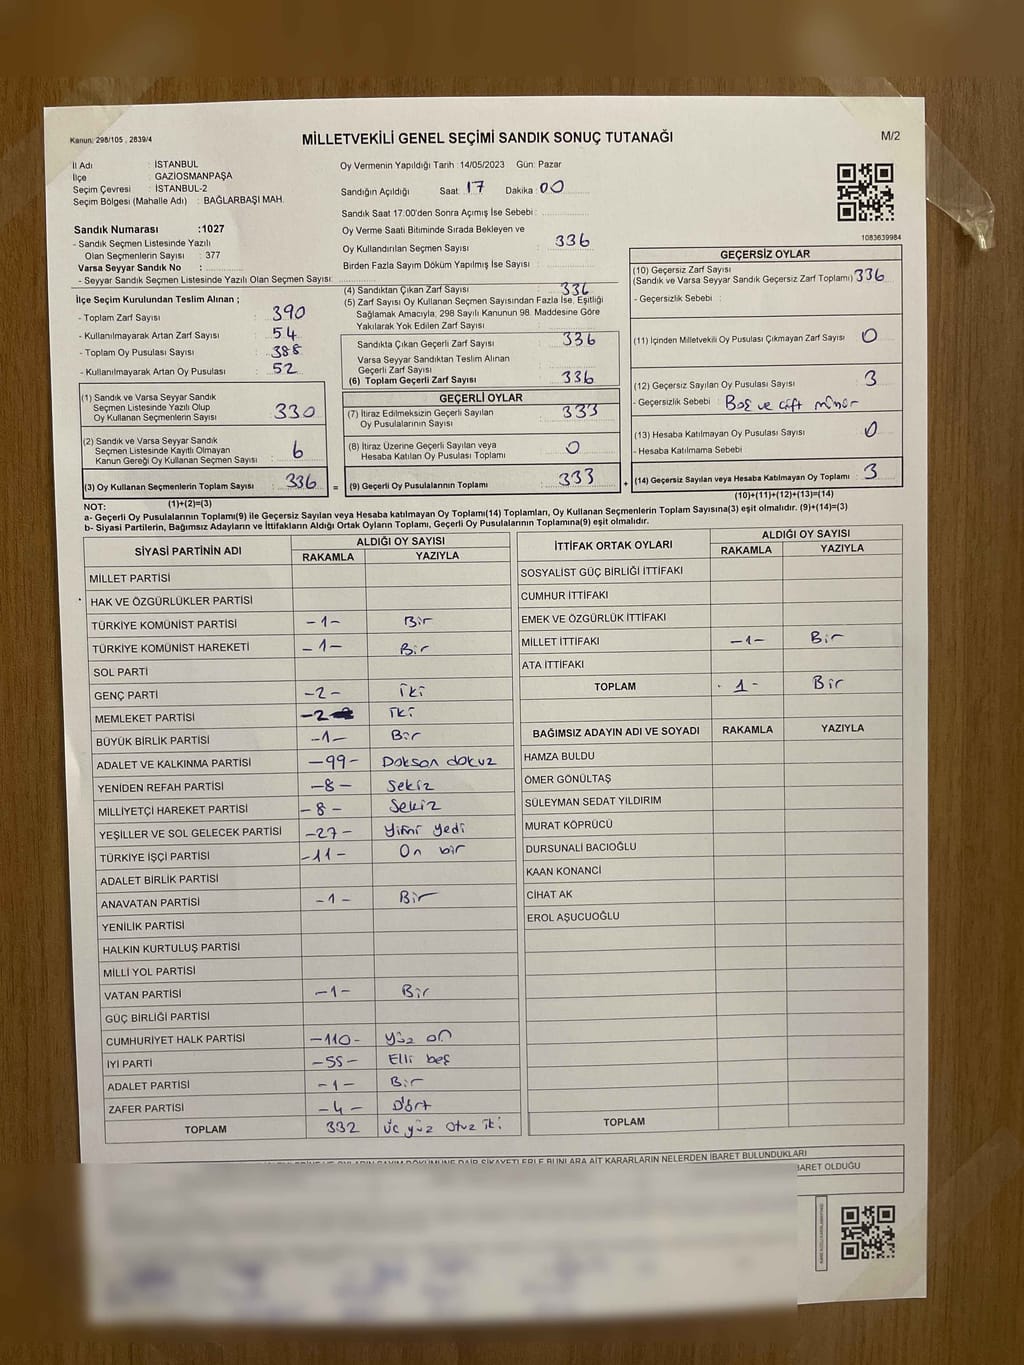 Kanun: 298/105 , 2839/4
MİLLETVEKİLİ GENEL SEÇİMİ SANDIK SONUÇ TUTANAĞI
M/2
İl Adı : İSTANBUL
İlçe : GAZİOSMANPAŞA
Seçim Çevresi : İSTANBUL-2
Seçim Bölgesi (Mahalle Adı) : BAĞLARBAŞI MAH.
Sandık Numarası :1027
- Sandık Seçmen Listesinde Yazılı
Olan Seçmenlerin Sayısı : 377
Varsa Seyyar Sandık No :
- Seyyar Sandık Seçmen Listesinde Yazılı Olan Seçmen Sayısı:
Oy Vermenin Yapıldığı Tarih :14/05/2023 Gün: Pazar
Sandığın Açıldığı Saat 17 Dakika 00
Sandık Saat 17:00'den Sonra Açımış İse Sebebi :
Oy Verme Saati Bitiminde Sırada Bekleyen ve
Oy Kullandırılan Seçmen Sayısı : 336
Birden Fazla Sayım Döküm Yapılmış İse Sayısı :
1083639984
İlçe Seçim Kurulundan Teslim Alınan ;
- Toplam Zarf Sayısı : 390
- Kullanılmayarak Artan Zarf Sayısı : 54
- Toplam Oy Pusulası Sayısı : 388
- Kullanılmayarak Artan Oy Pusulası : 52
(1) Sandık ve Varsa Seyyar Sandık
Seçmen Listesinde Yazılı Olup
Oy Kullanan Seçmenlerin Sayısı : 330
(2) Sandık ve Varsa Seyyar Sandık
Seçmen Listesinde Kayıtlı Olmayan
Kanun Gereği Oy Kullanan Seçmen Sayısı : 6
(3) Oy Kullanan Seçmenlerin Toplam Sayısı : 336
(1)+(2)=(3)
(4) Sandıktan Çıkan Zarf Sayısı : 336
(5) Zarf Sayısı Oy Kullanan Seçmen Sayısından Fazla İse, Eşitliği
Sağlamak Amacıyla, 298 Sayılı Kanunun 98. Maddesine Göre
Yakılarak Yok Edilen Zarf Sayısı :
Sandıkta Çıkan Geçerli Zarf Sayısı : 336
Varsa Seyyar Sandıktan Teslim Alınan
Geçerli Zarf Sayısı :
(6) Toplam Geçerli Zarf Sayısı : 336
GEÇERLİ OYLAR
(7) İtiraz Edilmeksizin Geçerli Sayılan
Oy Pusulalarının Sayısı : 333
(8) İtiraz Üzerine Geçerli Sayılan veya
Hesaba Katılan Oy Pusulası Toplamı : 0
= (9) Geçerli Oy Pusulalarının Toplamı : 333 +
GEÇERSİZ OYLAR
(10) Geçersiz Zarf Sayısı
(Sandık ve Varsa Seyyar Sandık Geçersiz Zarf Toplamı) 336
- Geçersizlik Sebebi :
(11) İçinden Milletvekili Oy Pusulası Çıkmayan Zarf Sayısı : 0
(12) Geçersiz Sayılan Oy Pusulası Sayısı : 3
- Geçersizlik Sebebi : Boş ve çift mühür
(13) Hesaba Katılmayan Oy Pusulası Sayısı : 0
- Hesaba Katılmama Sebebi
(14) Geçersiz Sayılan veya Hesaba Katılmayan Oy Toplamı : 3
(10)+(11)+(12)+(13)=(14)
NOT:
a- Geçerli Oy Pusulalarının Toplamı(9) ile Geçersiz Sayılan veya Hesaba katılmayan Oy Toplamı(14) Toplamları, Oy Kullanan Seçmenlerin Toplam Sayısına(3) eşit olmalıdır. (9)+(14)=(3)
b- Siyasi Partilerin, Bağımsız Adayların ve İttifakların Aldığı Ortak Oyların Toplamı, Geçerli Oy Pusulalarının Toplamına(9) eşit olmalıdır.
SİYASİ PARTİNİN ADI ALDIĞI OY SAYISI
RAKAMLA YAZIYLA
MİLLET PARTİSİ
HAK VE ÖZGÜRLÜKLER PARTİSİ
TÜRKİYE KOMÜNİST PARTİSİ -1- Bir
TÜRKİYE KOMÜNİST HAREKETİ -1- Bir
SOL PARTİ
GENÇ PARTİ -2- İki
MEMLEKET PARTİSİ -2 İki
BÜYÜK BİRLİK PARTİSİ -1- Bir
ADALET VE KALKINMA PARTİSİ -99- Doksan dokuz
YENİDEN REFAH PARTİSİ -8- Sekiz
MİLLİYETÇİ HAREKET PARTİSİ -8- Sekiz
YEŞİLLER VE SOL GELECEK PARTİSİ -27- Yirmi yedi
TÜRKİYE İŞÇİ PARTİSİ -11- On bir
ADALET BİRLİK PARTİSİ
ANAVATAN PARTİSİ -1- Bir
YENİLİK PARTİSİ
HALKIN KURTULUŞ PARTİSİ
MİLLİ YOL PARTİSİ
VATAN PARTİSİ -1- Bir
GÜÇ BİRLİĞİ PARTİSİ
CUMHURİYET HALK PARTİSİ -110- Yüz on
İYİ PARTİ -55- Elli beş
ADALET PARTİSİ -1- Bir
ZAFER PARTİSİ -4- Dört
TOPLAM 332 Üç yüz otuz iki
İTTİFAK ORTAK OYLARI ALDIĞI OY SAYISI
RAKAMLA YAZIYLA
SOSYALİST GÜÇ BİRLİĞİ İTTİFAKI
CUMHUR İTTİFAKI
EMEK VE ÖZGÜRLÜK İTTİFAKI
MİLLET İTTİFAKI -1- Bir
ATA İTTİFAKI
TOPLAM 1- Bir
BAĞIMSIZ ADAYIN ADI VE SOYADI RAKAMLA YAZIYLA
HAMZA BULDU
ÖMER GÖNÜLTAŞ
SÜLEYMAN SEDAT YILDIRIM
MURAT KÖPRÜCÜ
DURSUNALİ BACIOĞLU
KAAN KONANCİ
CİHAT AK
EROL AŞUCUOĞLU
TOPLAM
ŞİKAYETLERLE BUNLARA AİT KARARLARIN NELERDEN İBARET BULUNDUKLARI
İBARET OLDUĞU